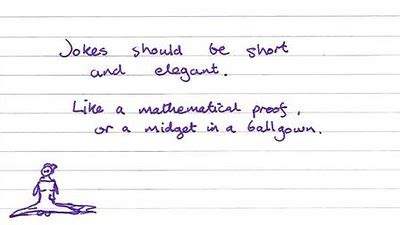 Jokes should be short
and elegant.
Like a mathematical proof,
or a midget in a ballgown.